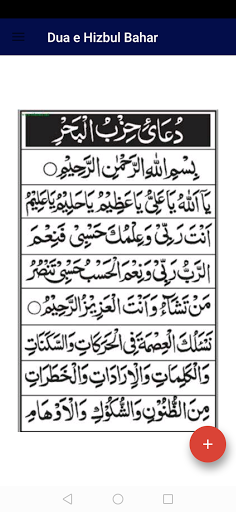 Dua e Hizbul Bahar
دُعَائ حِزْبُ الْبَحْرِ
بِسْمِ اللهِ الرَّحْمٰنِ الرَّحِيْمِ
يَآ اَللهُ يَا عَلِيُّ يَا عَظِيْمُ يَا حَلِيْمُ يَا عَلِيْمُ
اَنْتَ رَبِّيْ وَعِلْمُكَ حَسْبِيْ فَنِعْمَ
الرَّبُّ رَبِّيْ وَنِعْمَ الْحَسْبُ حَسْبِيْ تَنْصُرُ
مَنْ تَشَآءُ وَاَنْتَ الْعَزِيْزُ الرَّحِيْمُ
نَسْئَلُكَ الْعِصْمَةَ فِي الْحَرَكَاتِ وَالسَّكَنَاتِ
وَالْكَلِمَاتِ وَالْاِرَادَاتِ وَالْخَطَرَاتِ
مِنَ الظُّنُوْنِ وَالشُّكُوْكِ وَالْاَوْهَامِ
+